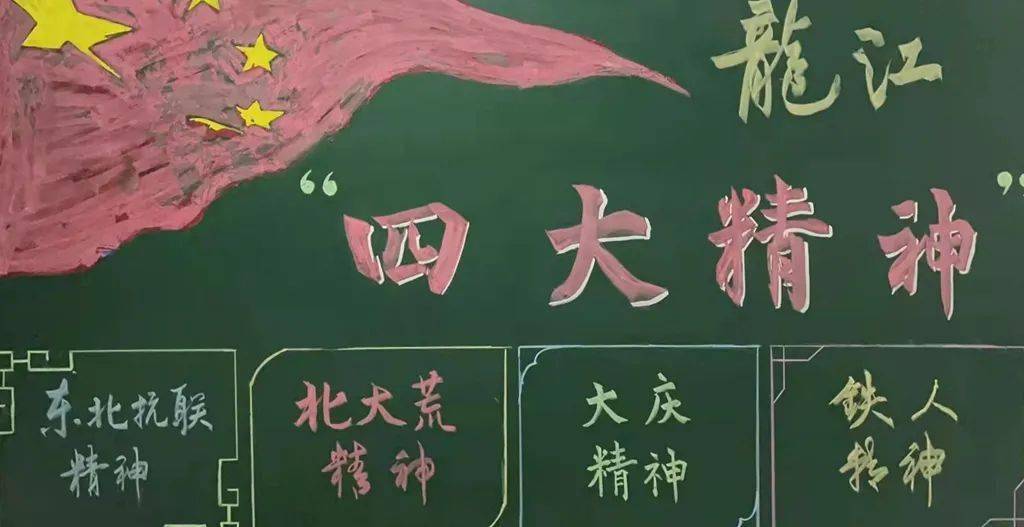 龍江
“四大精神”
东北抗联
精神
北大荒
精神
大庆
精神
鉄人
精神